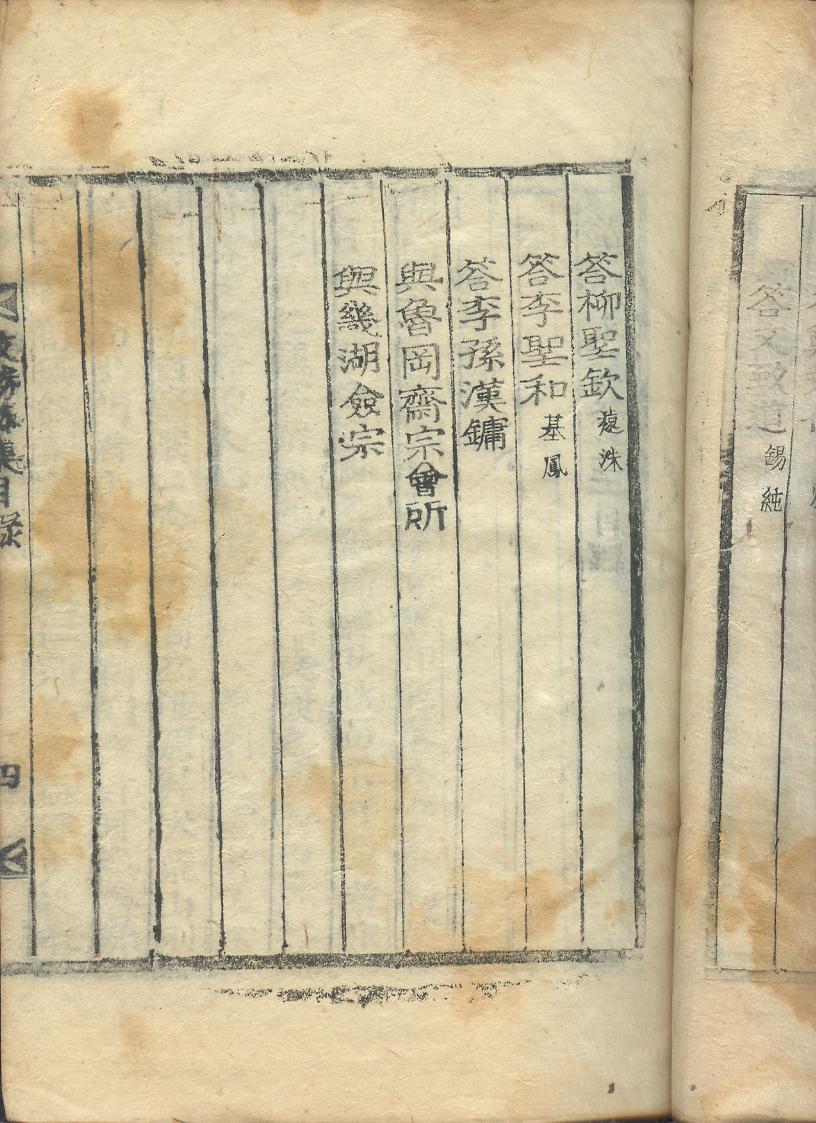 答文致道 錫純
答柳聖欽 遠洙
答李聖和 基鳳
答李孫漢鏞
與魯岡齋宗會所
與幾湖僉宗
集目录
四